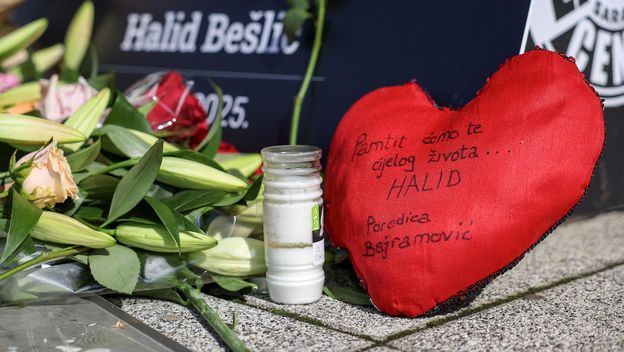 Halid Bešlić
2025.
SARA
CEN
Pamtit ćemo te
cijelog života...
HALID
Porodica
Bajramović